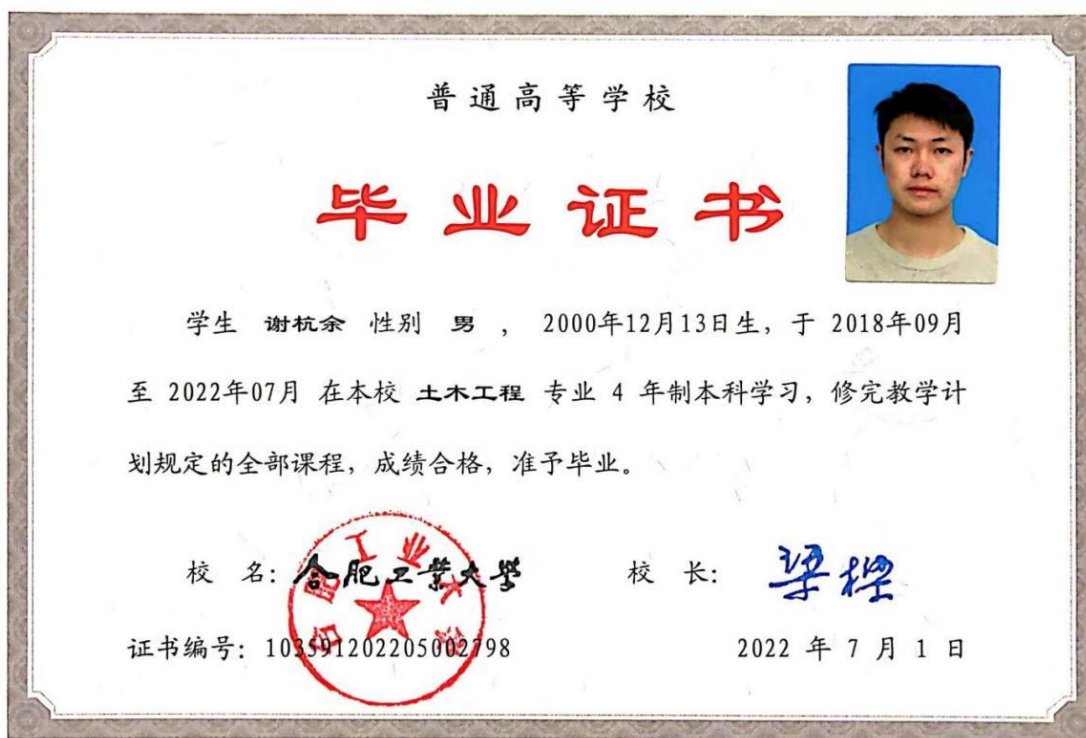 普通高等学校
毕业证书
学生 谢杭余 性别 男 ， 2000年12月13日生，于 2018年09月
至 2022年07月 在本校 土木工程 专业 4 年制本科学习，修完教学计
划规定的全部课程，成绩合格，准予毕业。
校 名：合肥工业大学 校 长：梁樑
合肥工业大学
证书编号：103591202205002798 2022 年 7 月 1 日